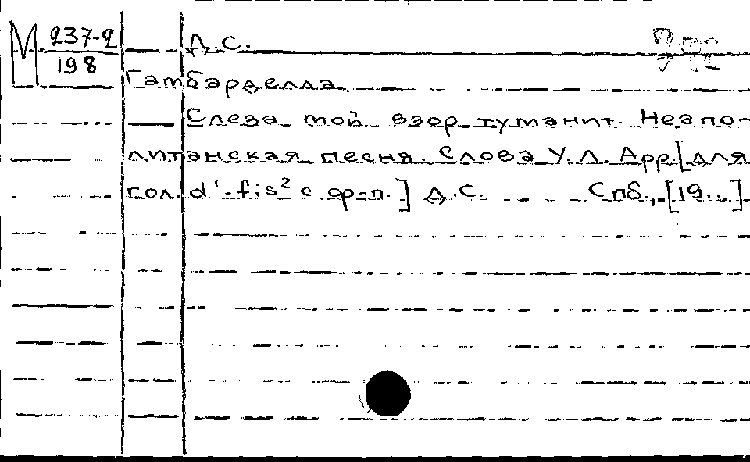 М 237-2
198
Д. С.
Гамбарделла
Слеза твой взор туманит. Неапо-
литанская песня. Слова У. Л. Арр. [для
гол. d'-fis² с ф-п.] Д. С. Спб., [19..]